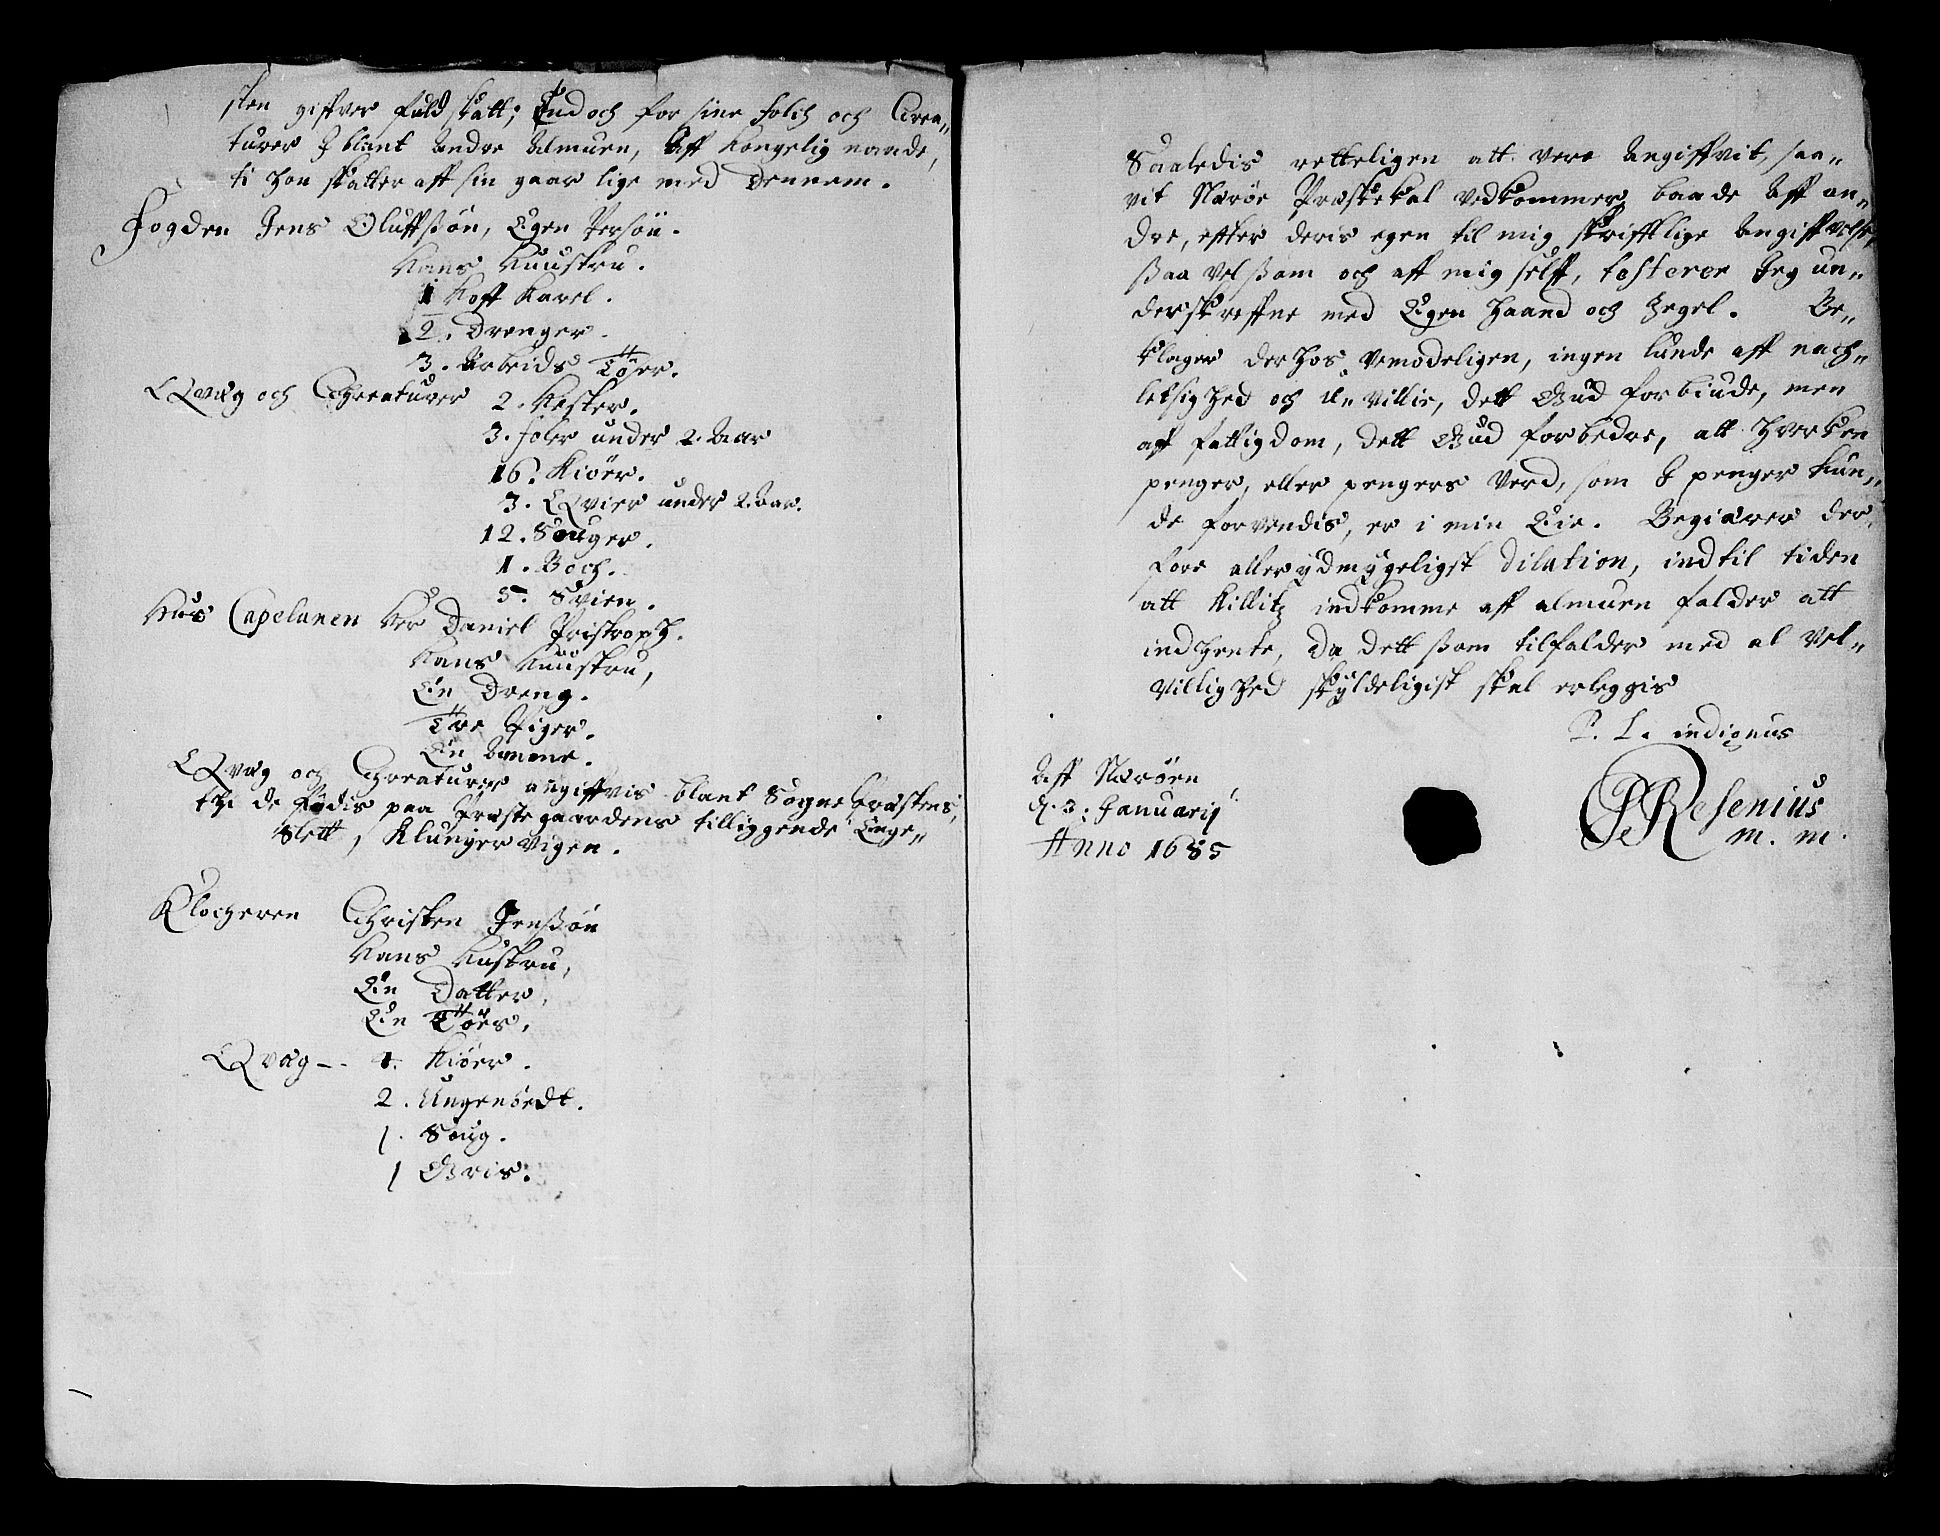 sten giffver fuld skatt; End och for sine folch och Crea„
turer I blant Andre Almuen, Aff kongelig naade,
ti hon skatter aff sin gaar lige med dennem.
Fogden Jens Oluffssøn, Egen Persøn.
Hans Huustru.
1 Hoff Karel.
2. Drenger.
3. Arbeids Tøser.
Qvæg och Creaturer 2. Hester.
3. foler under 2. Aar
16. Kiøer.
3. Qvier under 2. Aar.
12. Souger.
1. Boch.
5. Svien.
Hos Capelanen Her Daniel Pristroph.
Hans Huustru,
En Dreng.
Tre Piger.
En Amme.
Qvæg och Creaturer angiffvis blant Sogne Præstens,
thi de fødis paa Præstegaardens tilliggende Enge„
slett, Klunger Vigen.
Klocheren Christen Jenssøn
Hans Hustru,
En Datter,
En Tøes,
Qvæg -. 4. Kiøer.
2. Ungenødt.
1. Soug.
1 Gris.
Saaledis retteligen att vere Angiffvit, saa„
vit Nærøe Præstekal vedkommer, baade Aff an„
dre, efter deris egen til mig skrifftlige Angiffvelse,
ssaa vel ssom och aff mig selff, testerer Jeg un„
derskreffne med Egen Haand och Zegel. Be„
klager der hos vemodeligen, ingen lunde aff nach„
letsighed och u„villie, dett Gud forbiude, men
aff fattigdom, dett Gud forbedre, att hverken
penger, eller pengers verd, som I penger kun„
de forvendis, er i min Eie. Begiærer der„
fore allerydmygeligst dilation, indtil tiden
att Rillitz indkomme aff almuen falder att
indhente, da dett ssom tilfalder med al vel„
villighed skyldeligist skal erleggis
P. L. indignus
Aff Nærøen
d. 3: Januarij
Anno 1685
Resenius
m. m.